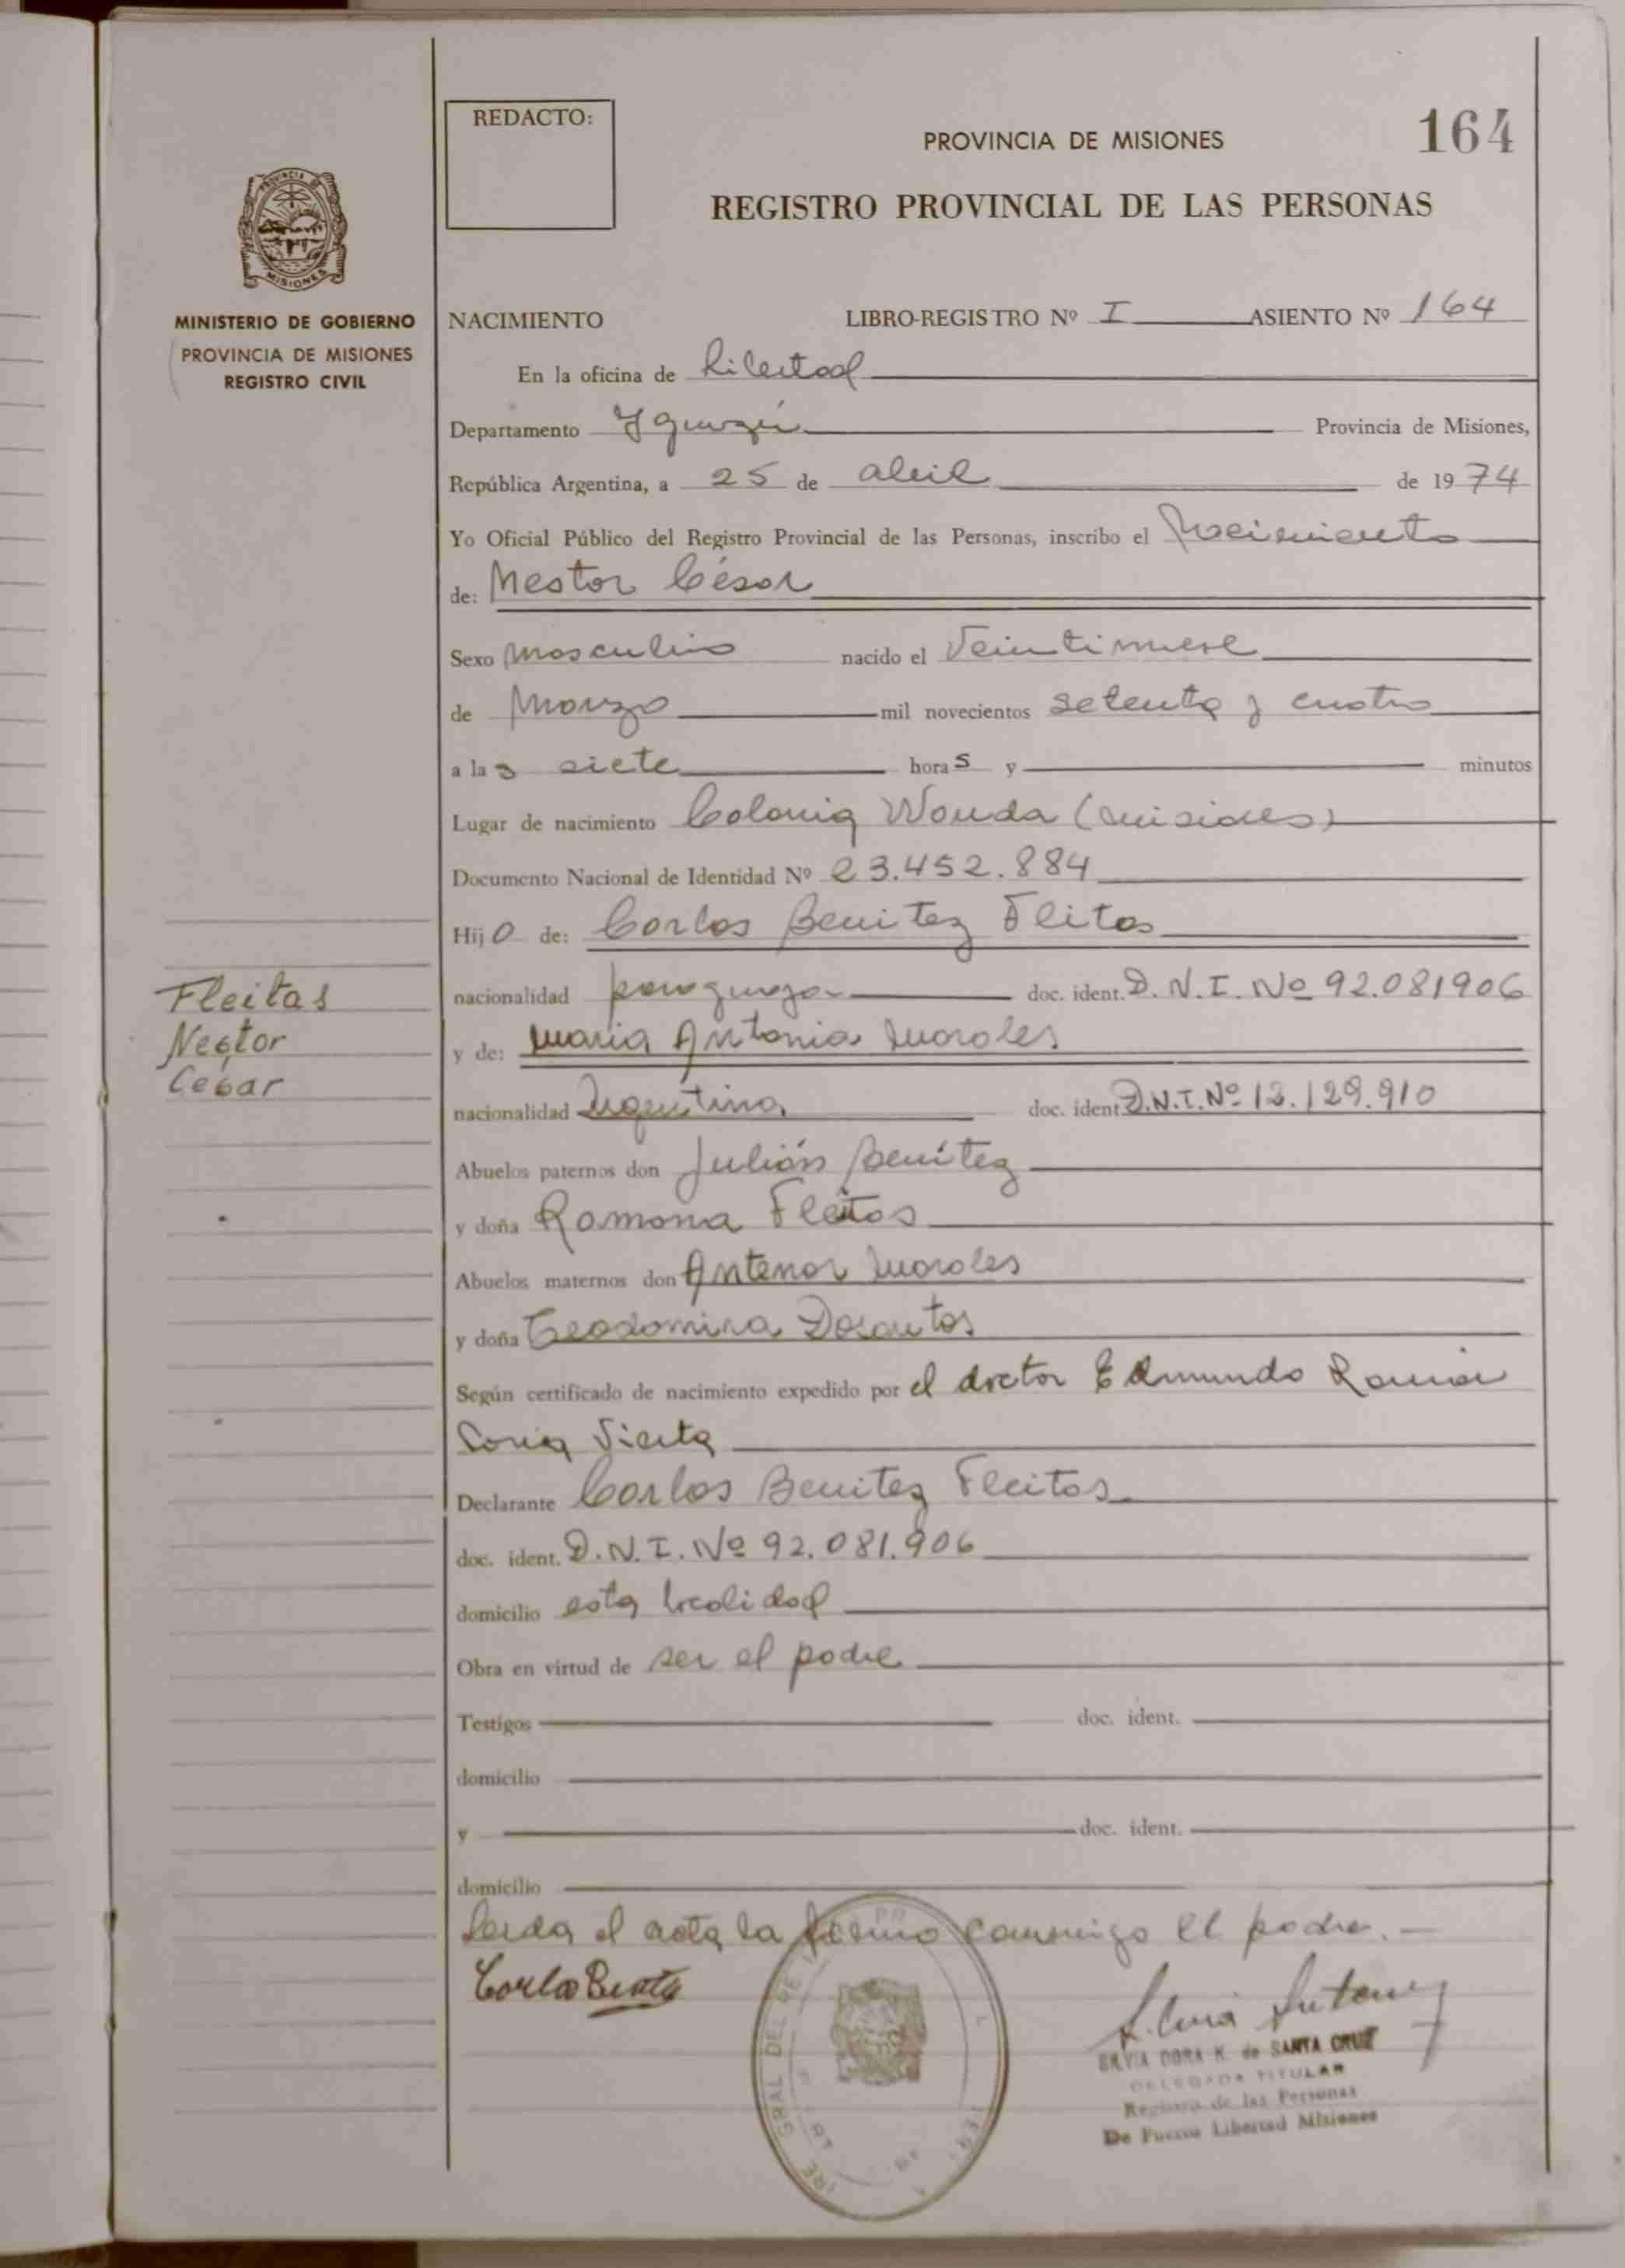 REDACTO:
PROVINCIA DE MISIONES
164
REGISTRO PROVINCIAL DE LAS PERSONAS
PROVINCIA DE
MISIONES
MINISTERIO DE GOBIERNO
PROVINCIA DE MISIONES
REGISTRO CIVIL
NACIMIENTO LIBRO-REGISTRO Nº I ASIENTO Nº 164
En la oficina de Libertad
Departamento Yguazú Provincia de Misiones,
República Argentina, a 25 de abril de 1974
Yo Oficial Público del Registro Provincial de las Personas, inscribo el Nacimiento
de: Nestor César
Sexo Masculino nacido el Veintinueve
de Marzo mil novecientos setenta y cuatro
a las siete horas y minutos
Lugar de nacimiento Colonia Wanda (Misiones)
Documento Nacional de Identidad Nº 23.452.884
Hijo de: Carlos Benitez Flitas
nacionalidad paraguaya doc. ident. D.N.I. Nº 92.081906
y de: Maria Antonia Morales
nacionalidad Argentina doc. ident. D.N.I. Nº 12.129.910
Abuelos paternos don Julián Benítez
y doña Ramona Fleitas
Abuelos maternos don Antenor Morales
y doña Teodomira Dosantos
Según certificado de nacimiento expedido por el doctor Edmundo Ramón
Soria Vieta
Declarante Carlos Benitez Fleitas
doc. ident. D.N.I. Nº 92.081.906
domicilio esta localidad
Obra en virtud de ser el padre
Testigos doc. ident.
domicilio
y doc. ident.
domicilio
Leida el acta la firma conmigo el padre.-
Fleitas
Nestor
César
Carlos Benite
SILVIA DORA K. de SANTA CRUZ
DELEGADA TITULAR
Registro de las Personas
De Puerto Libertad Misiones